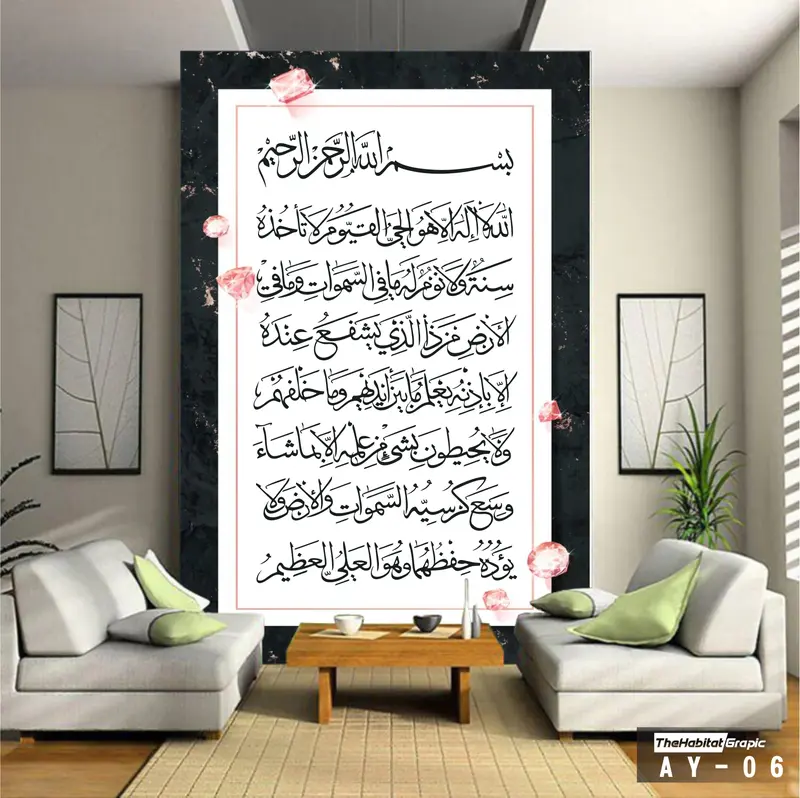 بسم الله الرحمن الرحيم
الله لا إله إلا هو الحي القيوم لا تأخذه
سنة ولا نوم له ما في السموات وما في
الأرض من ذا الذي يشفع عنده
إلا بإذنه يعلم ما بين أيديهم وما خلفهم
ولا يحيطون بشيء من علمه إلا بما شاء
وسع كرسيه السموات والأرض ولا
يؤده حفظهما وهو العلي العظيم
TheHabitat Grapic
AY-06